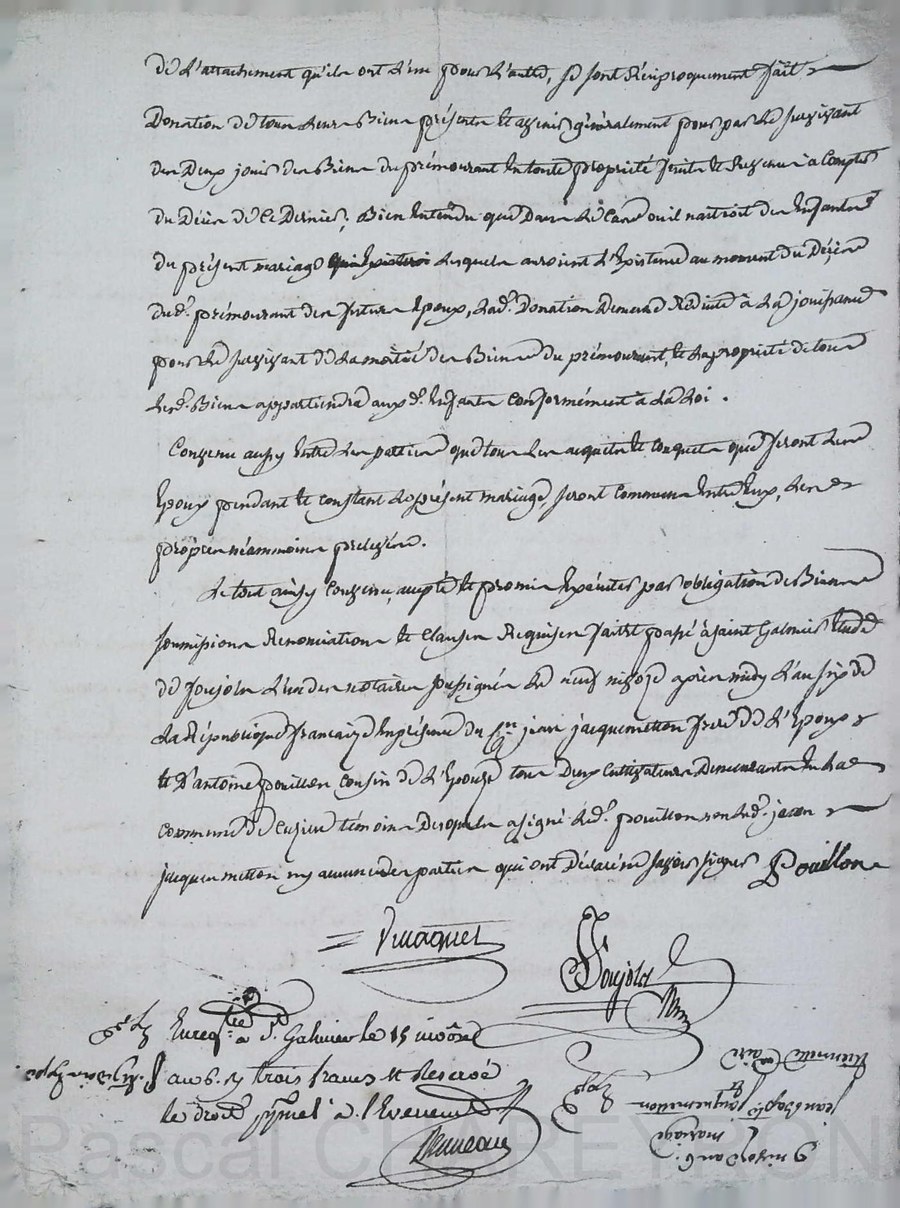 de l'attachement qu'ils ont l'un pour l'autre, se sont réciproquement fait
Donation de tous leurs Biens présents et avenir généralement pour par le survivant
des Deux jouir des Biens du prémourant en toute propriété fruits et revenus à compter
du Décès de ce Dernier; Bien entendu que Dans le cas où il naitroit des enfants
du présent mariage lesquels auroient l'existence au moment du Décès
dud. prémourant des futurs Epoux, lad. Donation Demeure Réduite à la jouissance
pour le survivant de la moitié des Biens du prémourant, et la propriété de tous
lesd. Biens appartiendra auxd. enfants conformément à la Loi.
Convenu aussy entre les parties que tous les acquets et conquets que feront les
Epoux pendant et constant le présent mariage, seront communs entre eux, les
propres néammoins prélevés.
Le tout ainsy convenu, accepté et promis exécuter par obligation de Biens
soumissions Renonciations et clauses Requises fait et passé à saint Galmier Etude
de Soujols l'un des notaires soussignés le neuf nivose après midy l'an six de
la République française en présence du Cen jean jacquemetton frere de l'Epoux
et D'antoine pouillon cousin de l'Epouse tous Deux cultivateurs Demeurants en la
commune de Cuzieu témoins Desquels a signé led. pouillon non led. jean
jacquemetton ny aucune des parties qui ont Déclaré ne savoir signer Pouillon
Soujols
Nre
Enregtré à St. Galmier le 15 nivôse
an 6. trois francs et Reservé
le droit à l'Evenement
9 nivose an 6.
mariage
jean baptiste jacquemetton
et
Pascal CHAREYRON